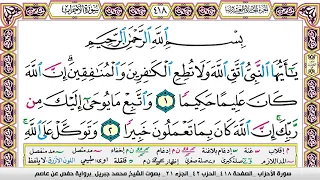 سورة الأحزاب ٤١٨
بِسْمِ اللَّهِ الرَّحْمَٰنِ الرَّحِيمِ
يَا أَيُّهَا النَّبِيُّ اتَّقِ اللَّهَ وَلَا تُطِعِ الْكَافِرِينَ وَالْمُنَافِقِينَ إِنَّ اللَّهَ
كَانَ عَلِيمًا حَكِيمًا ١ وَاتَّبِعْ مَا يُوحَىٰ إِلَيْكَ مِن
رَّبِّكَ إِنَّ اللَّهَ كَانَ بِمَا تَعْمَلُونَ خَبِيرًا ٢ وَتَوَكَّلْ عَلَى اللَّهِ
سورة الأحزاب . الصفحة ٤١٨ الحزب ٤٢ الجزء ٢١ . بصوت الشيخ محمد جبريل برواية حفص عن عاصم